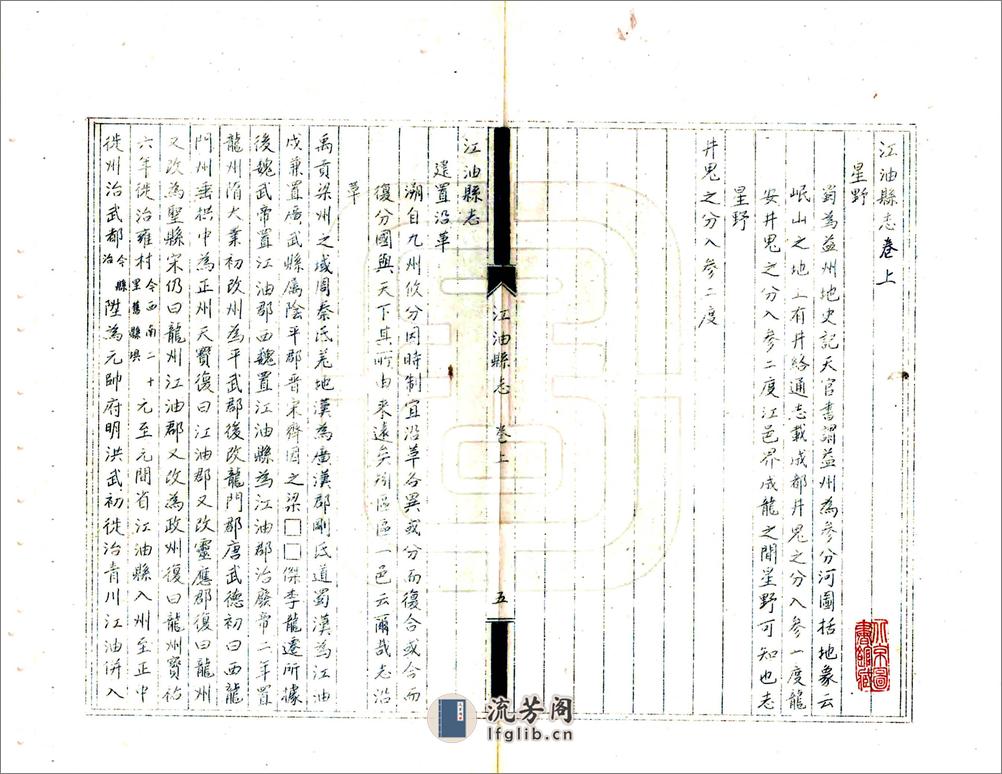 江油縣志卷上
星野
蜀為益州地史記天官書謂益州為參分河圖括地象云
岷山之地上有井絡通志載成都井鬼之分入參一度龍
安井鬼之分入參二度江邑界成龍之間星野可知也志
星野
井鬼之分入參二度
江油縣志
卷上
五
江油縣志
建置沿革
溯自九州攸分因時制宜沿革各異或分而復合或合而
復分國與天下其所由來遠矣區區一邑云爾哉志沿
革
禹貢梁州之域周秦氐羌地漢為廣漢郡剛氐道蜀漢為江油
戍兼置廣武縣屬陰平郡晉宋齊因之梁□□傑李龍遷所據
後魏武帝置江油郡西魏置江油縣為江油郡治廢帝二年置
龍州隋大業初改州為平武郡後改龍門郡唐武德初曰西龍
門州垂拱中為正州天寶復曰江油郡又改靈應郡復曰龍州
又改為聖縣宋仍曰龍州江油郡又改為政州復曰龍州寶祐
六年徙治雍村今西南二十里舊縣埧元至元間省江油縣入州至正中
徙州治武都今縣治陞為元帥府明洪武初徙治青川江油併入
北京圖書館藏
流芳阁
lfglib.cn